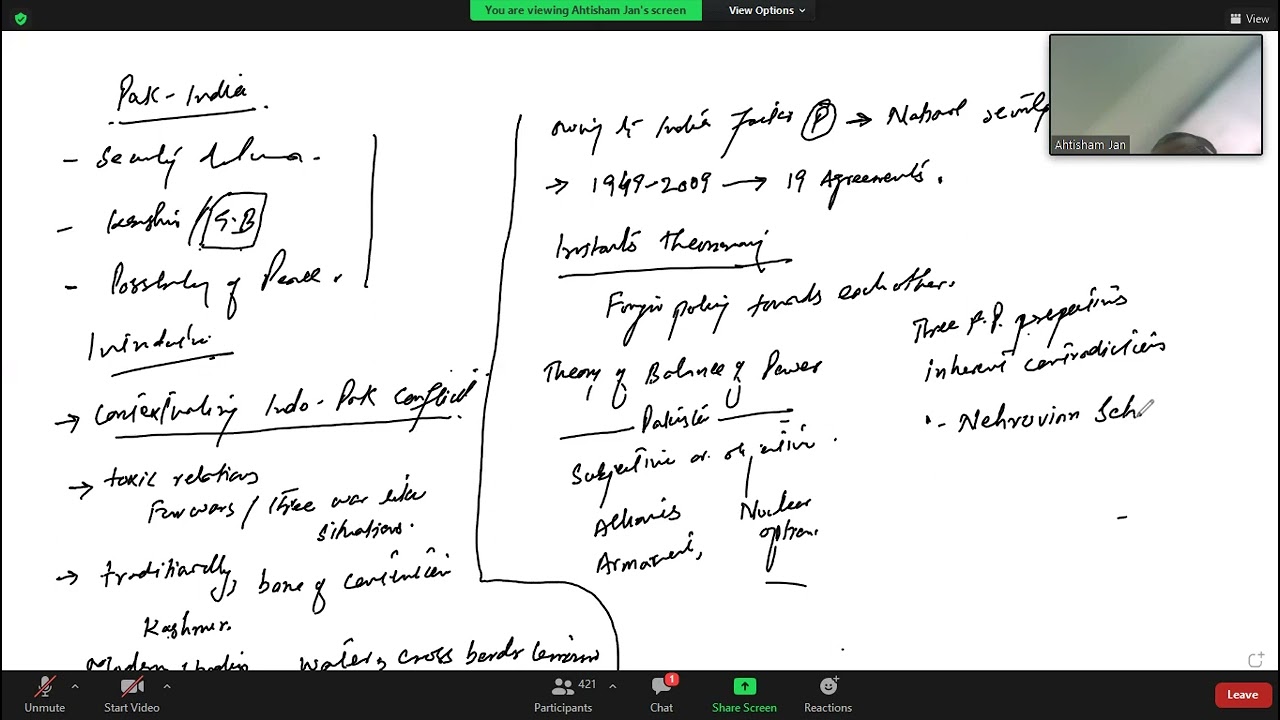 You are viewing Ahtisham Jan's screen
View Options
View
Pak-India
- Security dilemma.
- Kashmir / G.B
- Possibility of Peace.
Introduction
→ Contextualizing Indo-Pak conflict
→ toxic relations
Four wars / three war like
situations.
→ traditionally, bone of contention
Kashmir.
Modern water, cross border terrorism
owing to India Factor P → National security
→ 1949-2009 → 19 Agreements.
Foreign policy towards each other.
Theory of Balance of Power
Pakistan
Subjective or objective.
Alliances
Armament,
Nuclear
option.
Three F.P.
inherent contradictions
- Nehruvian Sch
Ahtisham Jan
Unmute
Start Video
421
Participants
1
Chat
Share Screen
Reactions
Leave